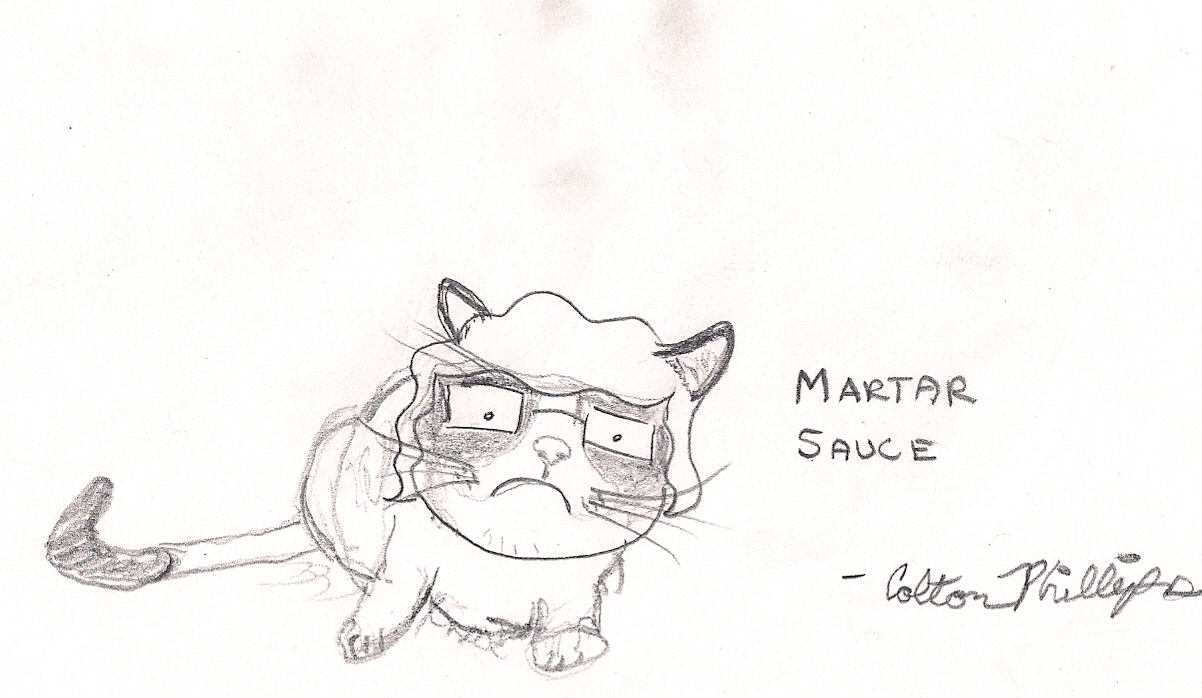 MARTAR
SAUCE
- Colton Phillips